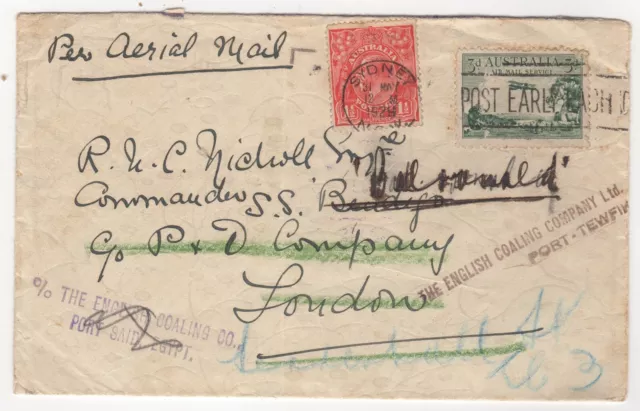 Per Aerial Mail
AUSTRALIA
SYDNEY
3d AUSTRALIA 3d
AIR MAIL SERVICE
POST EARLY EACH D
R. N. C. Nicholl
Commander S.S. Bendigo
c/o P & O Company
London
THE ENGLISH COALING COMPANY Ltd.
PORT-TEWFIK
c/o THE ENGLISH COALING CO.,
PORT SAID, EGYPT.
Leadenhall St
EC 3